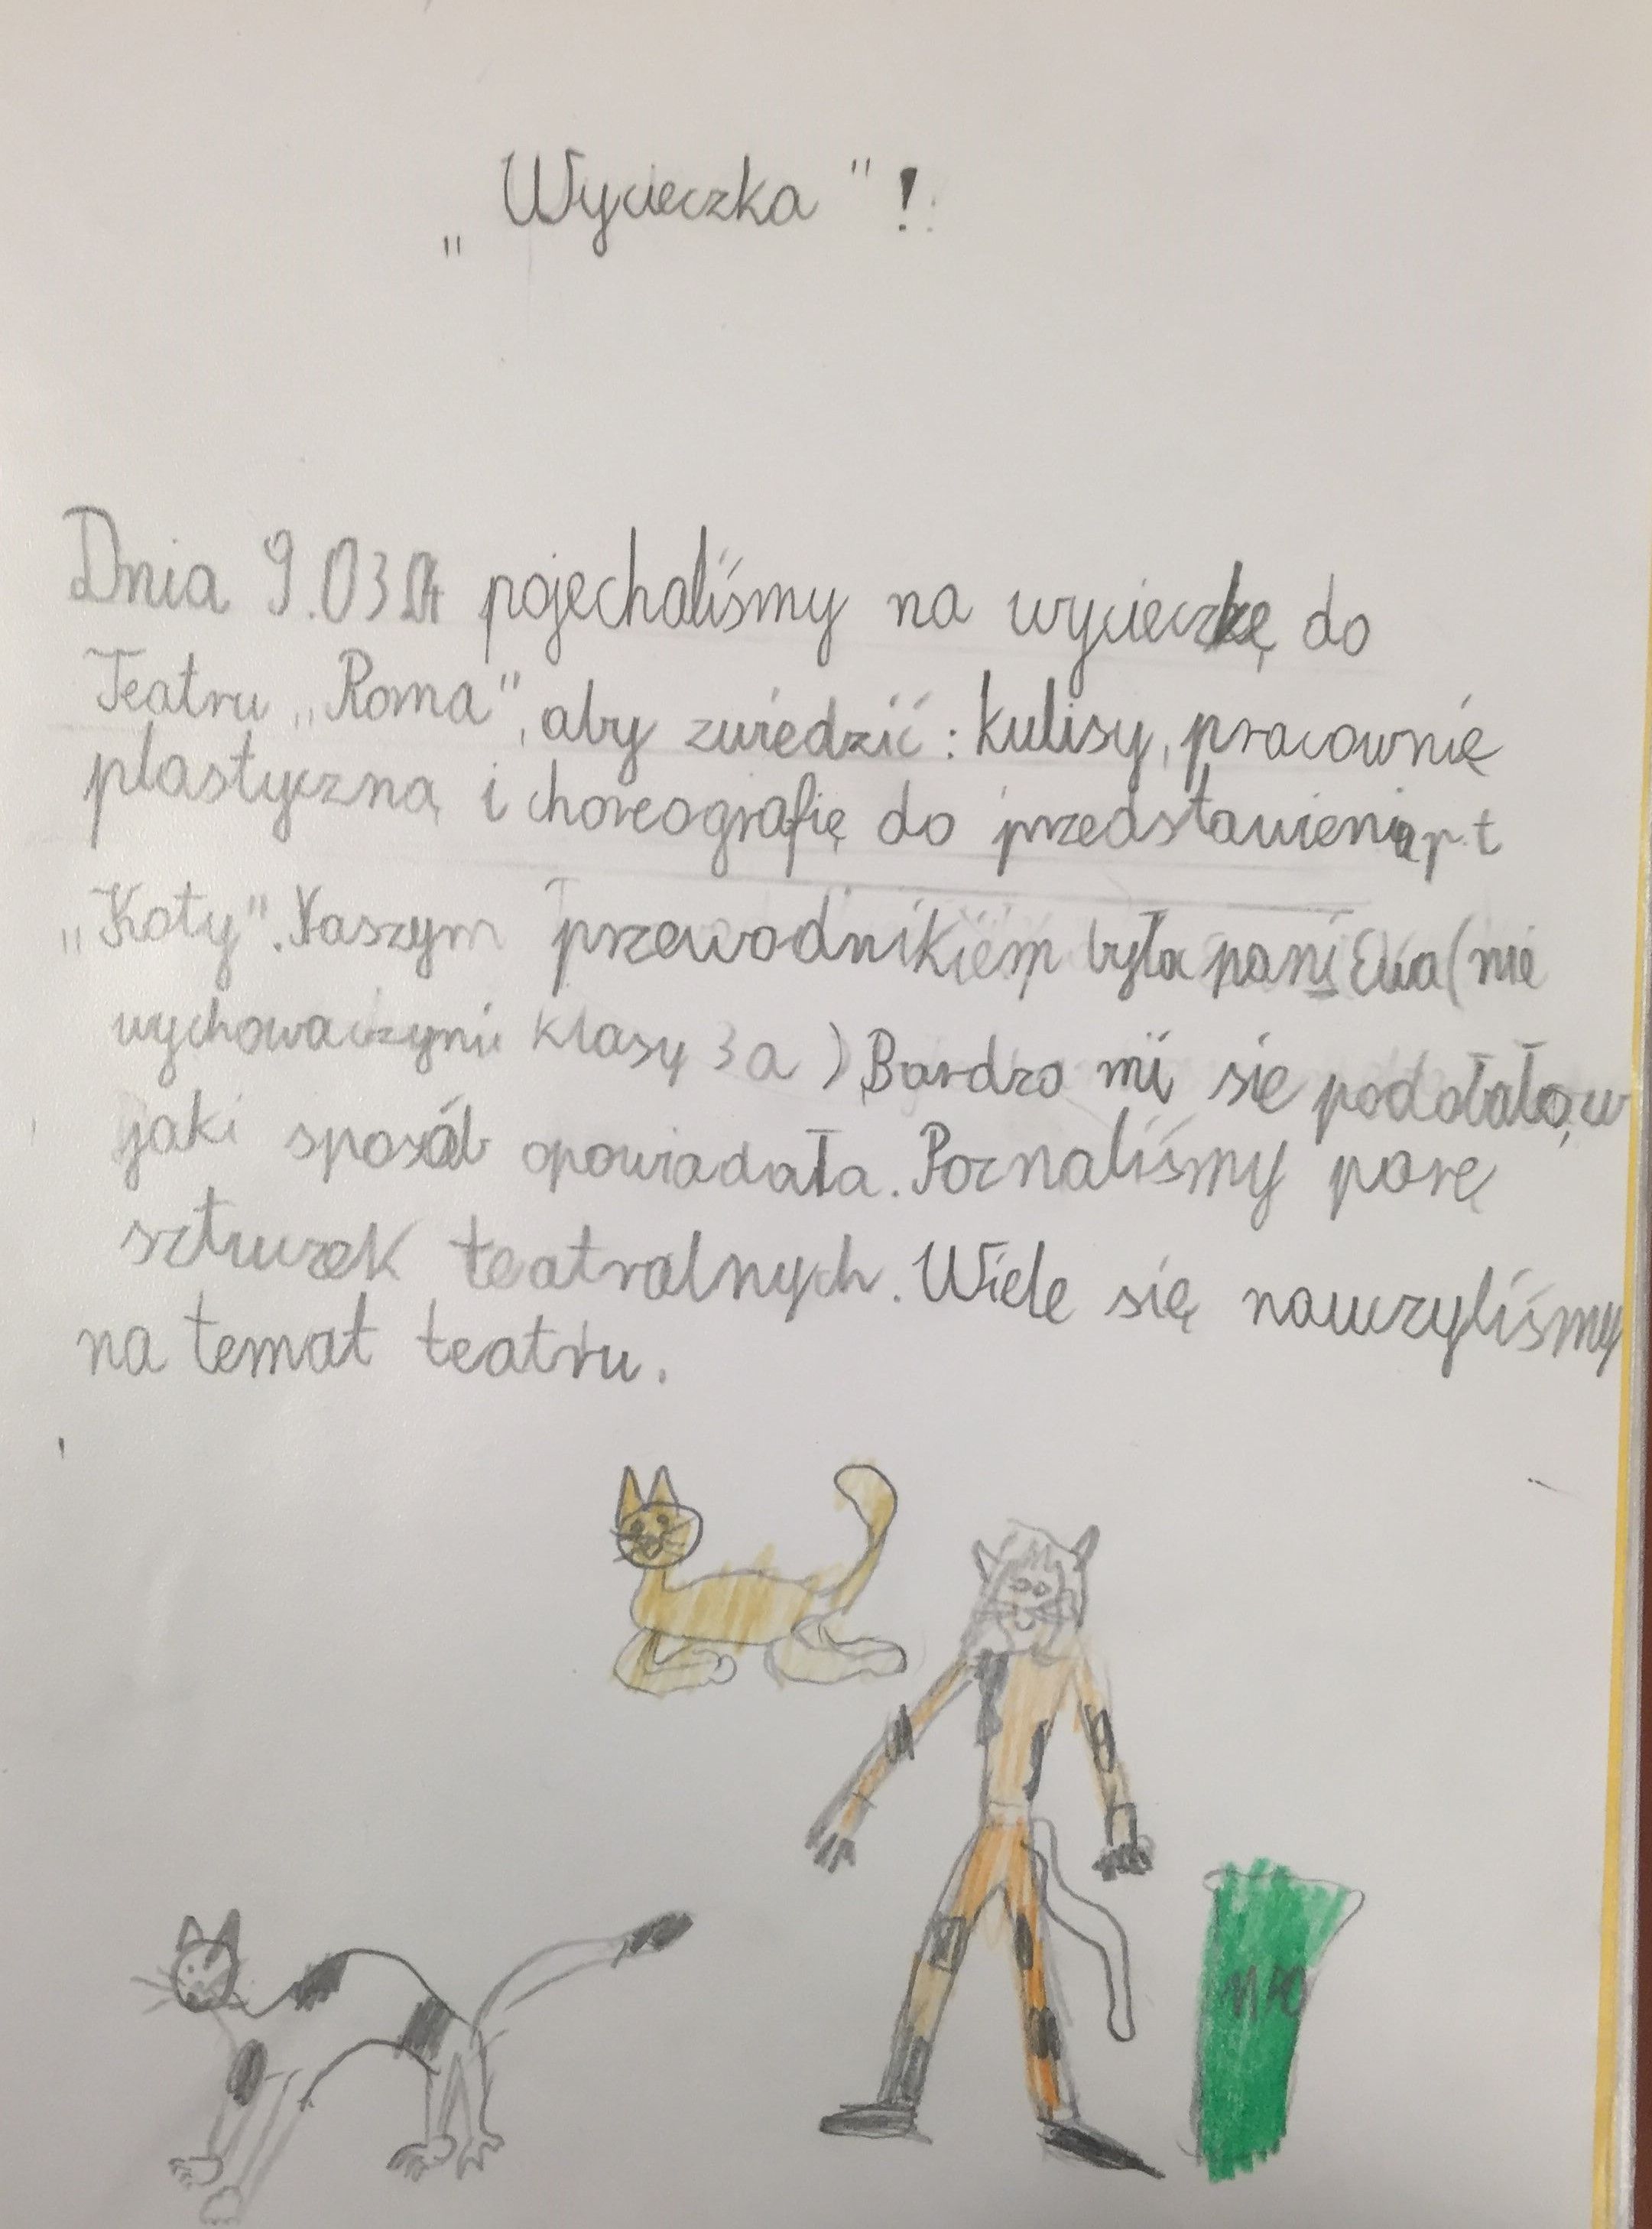 „Wycieczka"!
Dnia 9.03 pojechaliśmy na wycieczkę do
Teatru „Roma", aby zwiedzić: kulisy, pracownię
plastyczną i choreografię do przedstawienia p.t
„Koty". Naszym przewodnikiem była pani Ewa (nie
wychowawczyni klasy 3a) Bardzo mi się podobało, w
jaki sposób opowiadała. Poznaliśmy parę
sztuczek teatralnych. Wiele się nauczyliśmy
na temat teatru.
MPO